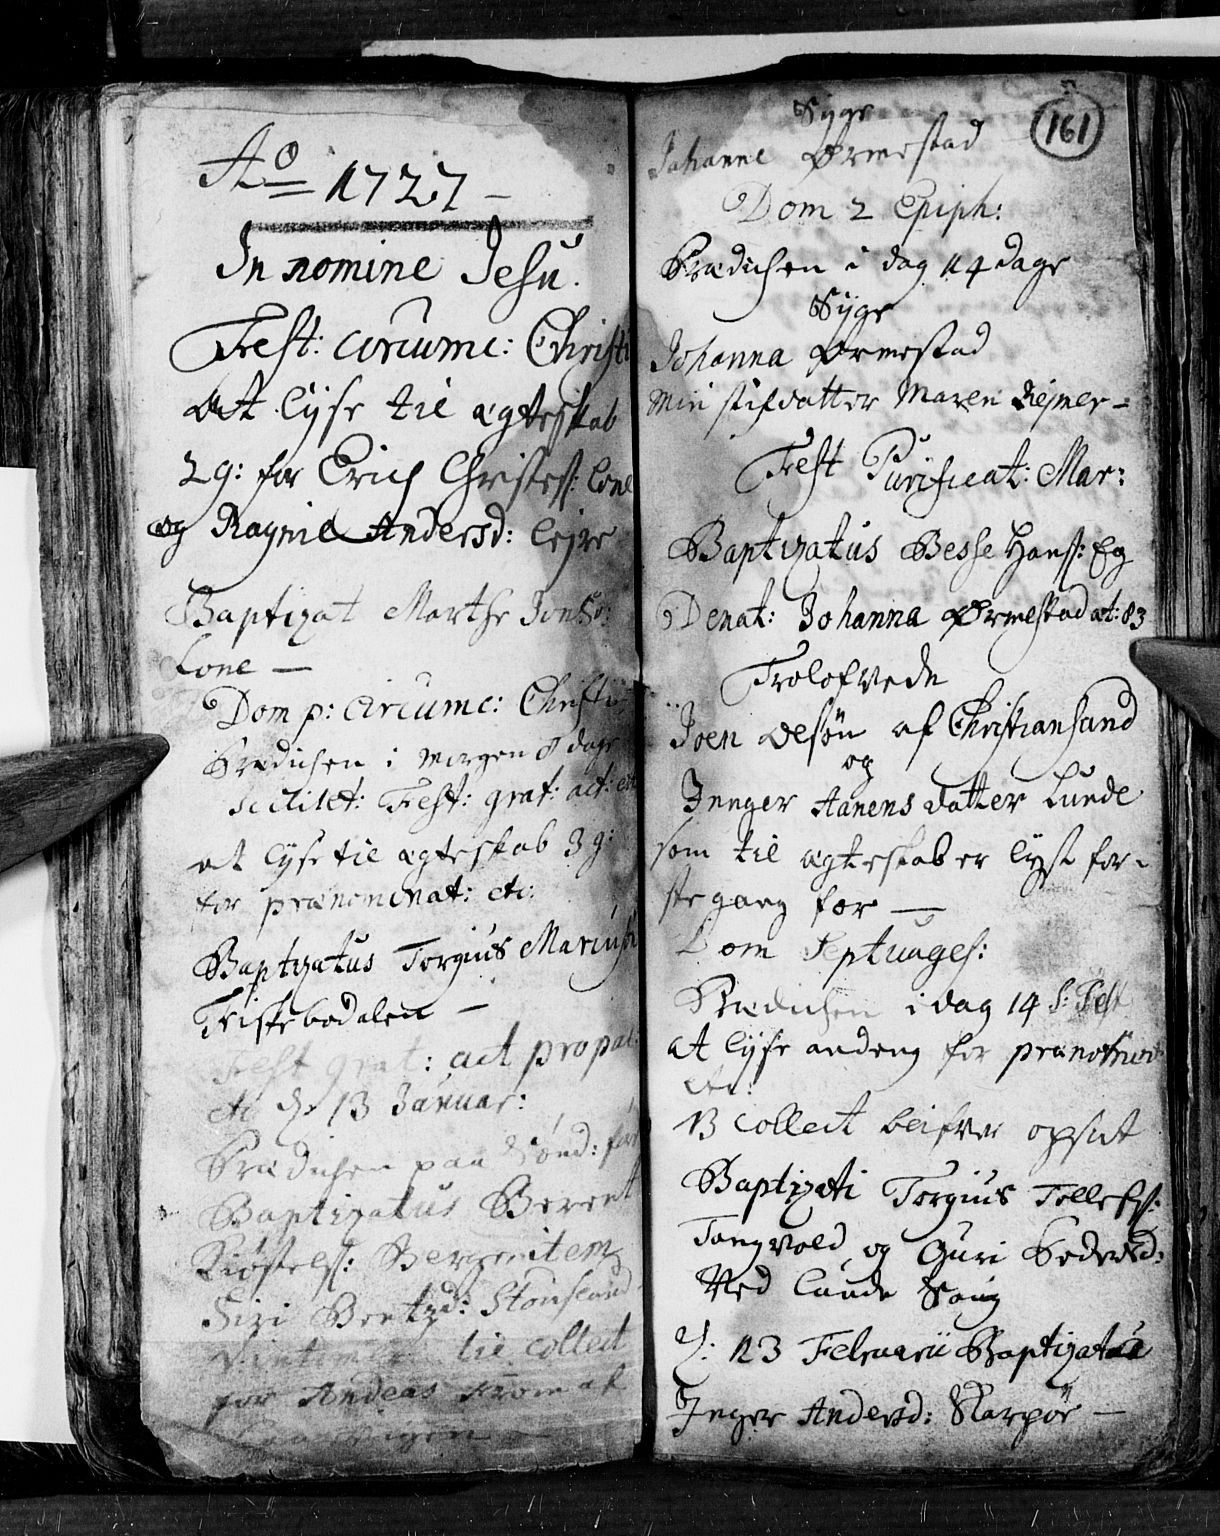 Ao 1727 -
In nomine Jesu.
Fest: circumc: Christi
at lyse til ægteskab
2 g: for Erich Christess: Lone
og Ragnil Andersd: lejre
Baptizat Marthe Jonsd:
Lone -
Dom p: circumc: Christi
Prædichen i morgen 8 dage
Fest: grat: act: etc
at lyse til ægteskab 3 g:
for prænominat: etc:
Baptizatus Torgius Mariuss:
Friskebodalen -
Fest grat: act propat:
etc d: 13 Januar:
Prædichen paa Sønd:
Baptizatus Berent
Kiøstels: item
Sizi Bentzd: Stousland
til collect
for Andeas af
161
Syge
Johanne Ørmestad
Dom 2 Epiph:
Prædichen i dag 14 dage
Syge
Johanna Ørmestad
Min stifdatter Maren Rejmer -
Fest Purificat: Mar:
Baptizatus Besse Hans: Eg
Denat: Johanna Ørmestad æt: 83
Trolofvede
Joen Olsøn af Christiansand
og
Innger Aanens datter Lunde
som til ægteskab er lyst for-
ste gang for -
Dom Septuages:
Prædichen i dag 14 S: Fest
at lyse andeng for prænominat
etc:
NB collect beifver opsat
Baptizati Torgius Tollefs:
Tangvold og Guri Pedersd:
Ved Lunde Saug
d: 23 Februarii Baptizata
Inger Andersd: Skarpøe -